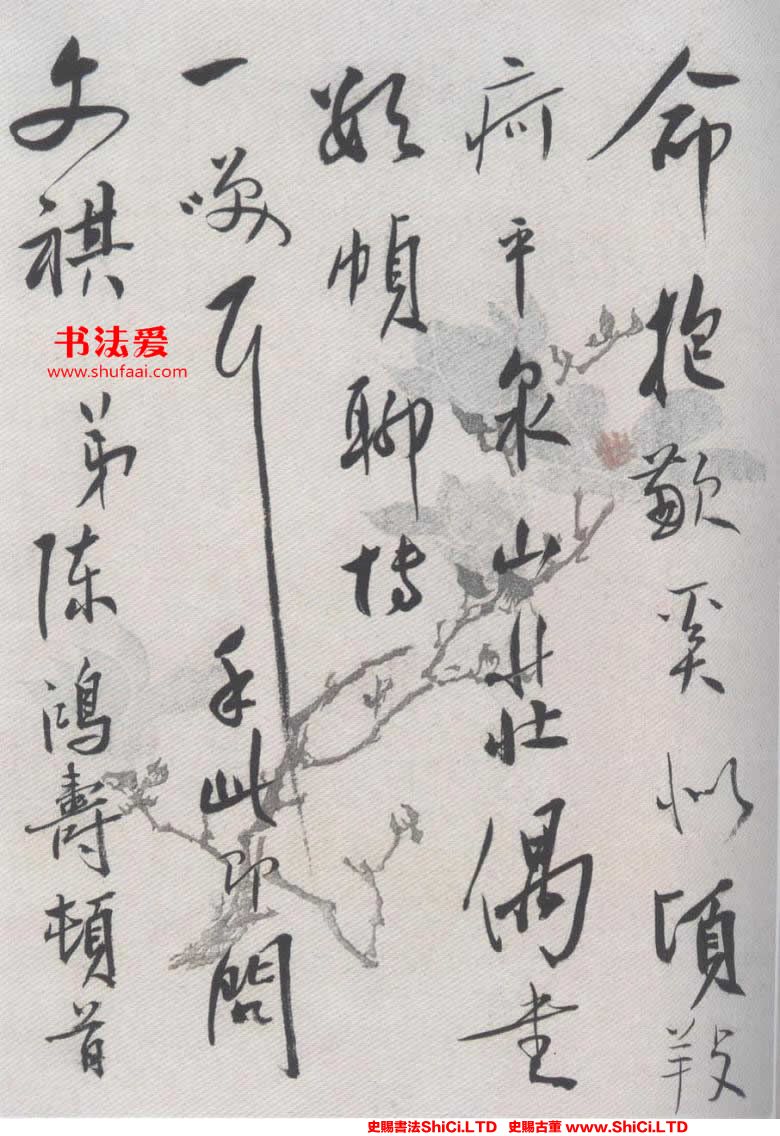 命抱歉奚似頃養
疴平泉山莊偶畫
數幀聊博
一笑耳 手此即問
文祺 弟陳鴻壽頓首
书法爱
www.shufaai.com
史賜書法ShiCi.LTD 史賜古董 www.ShiCi.LTD